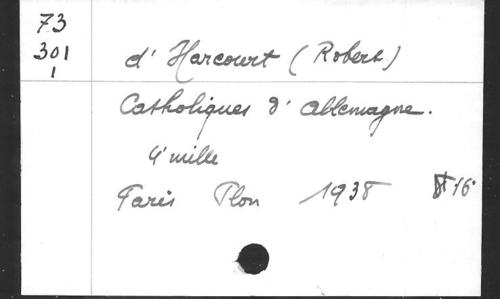 73
301
1
d'Harcourt (Robert)
Catholiques d'Allemagne.
4e mille
Paris Plon 1938 16°